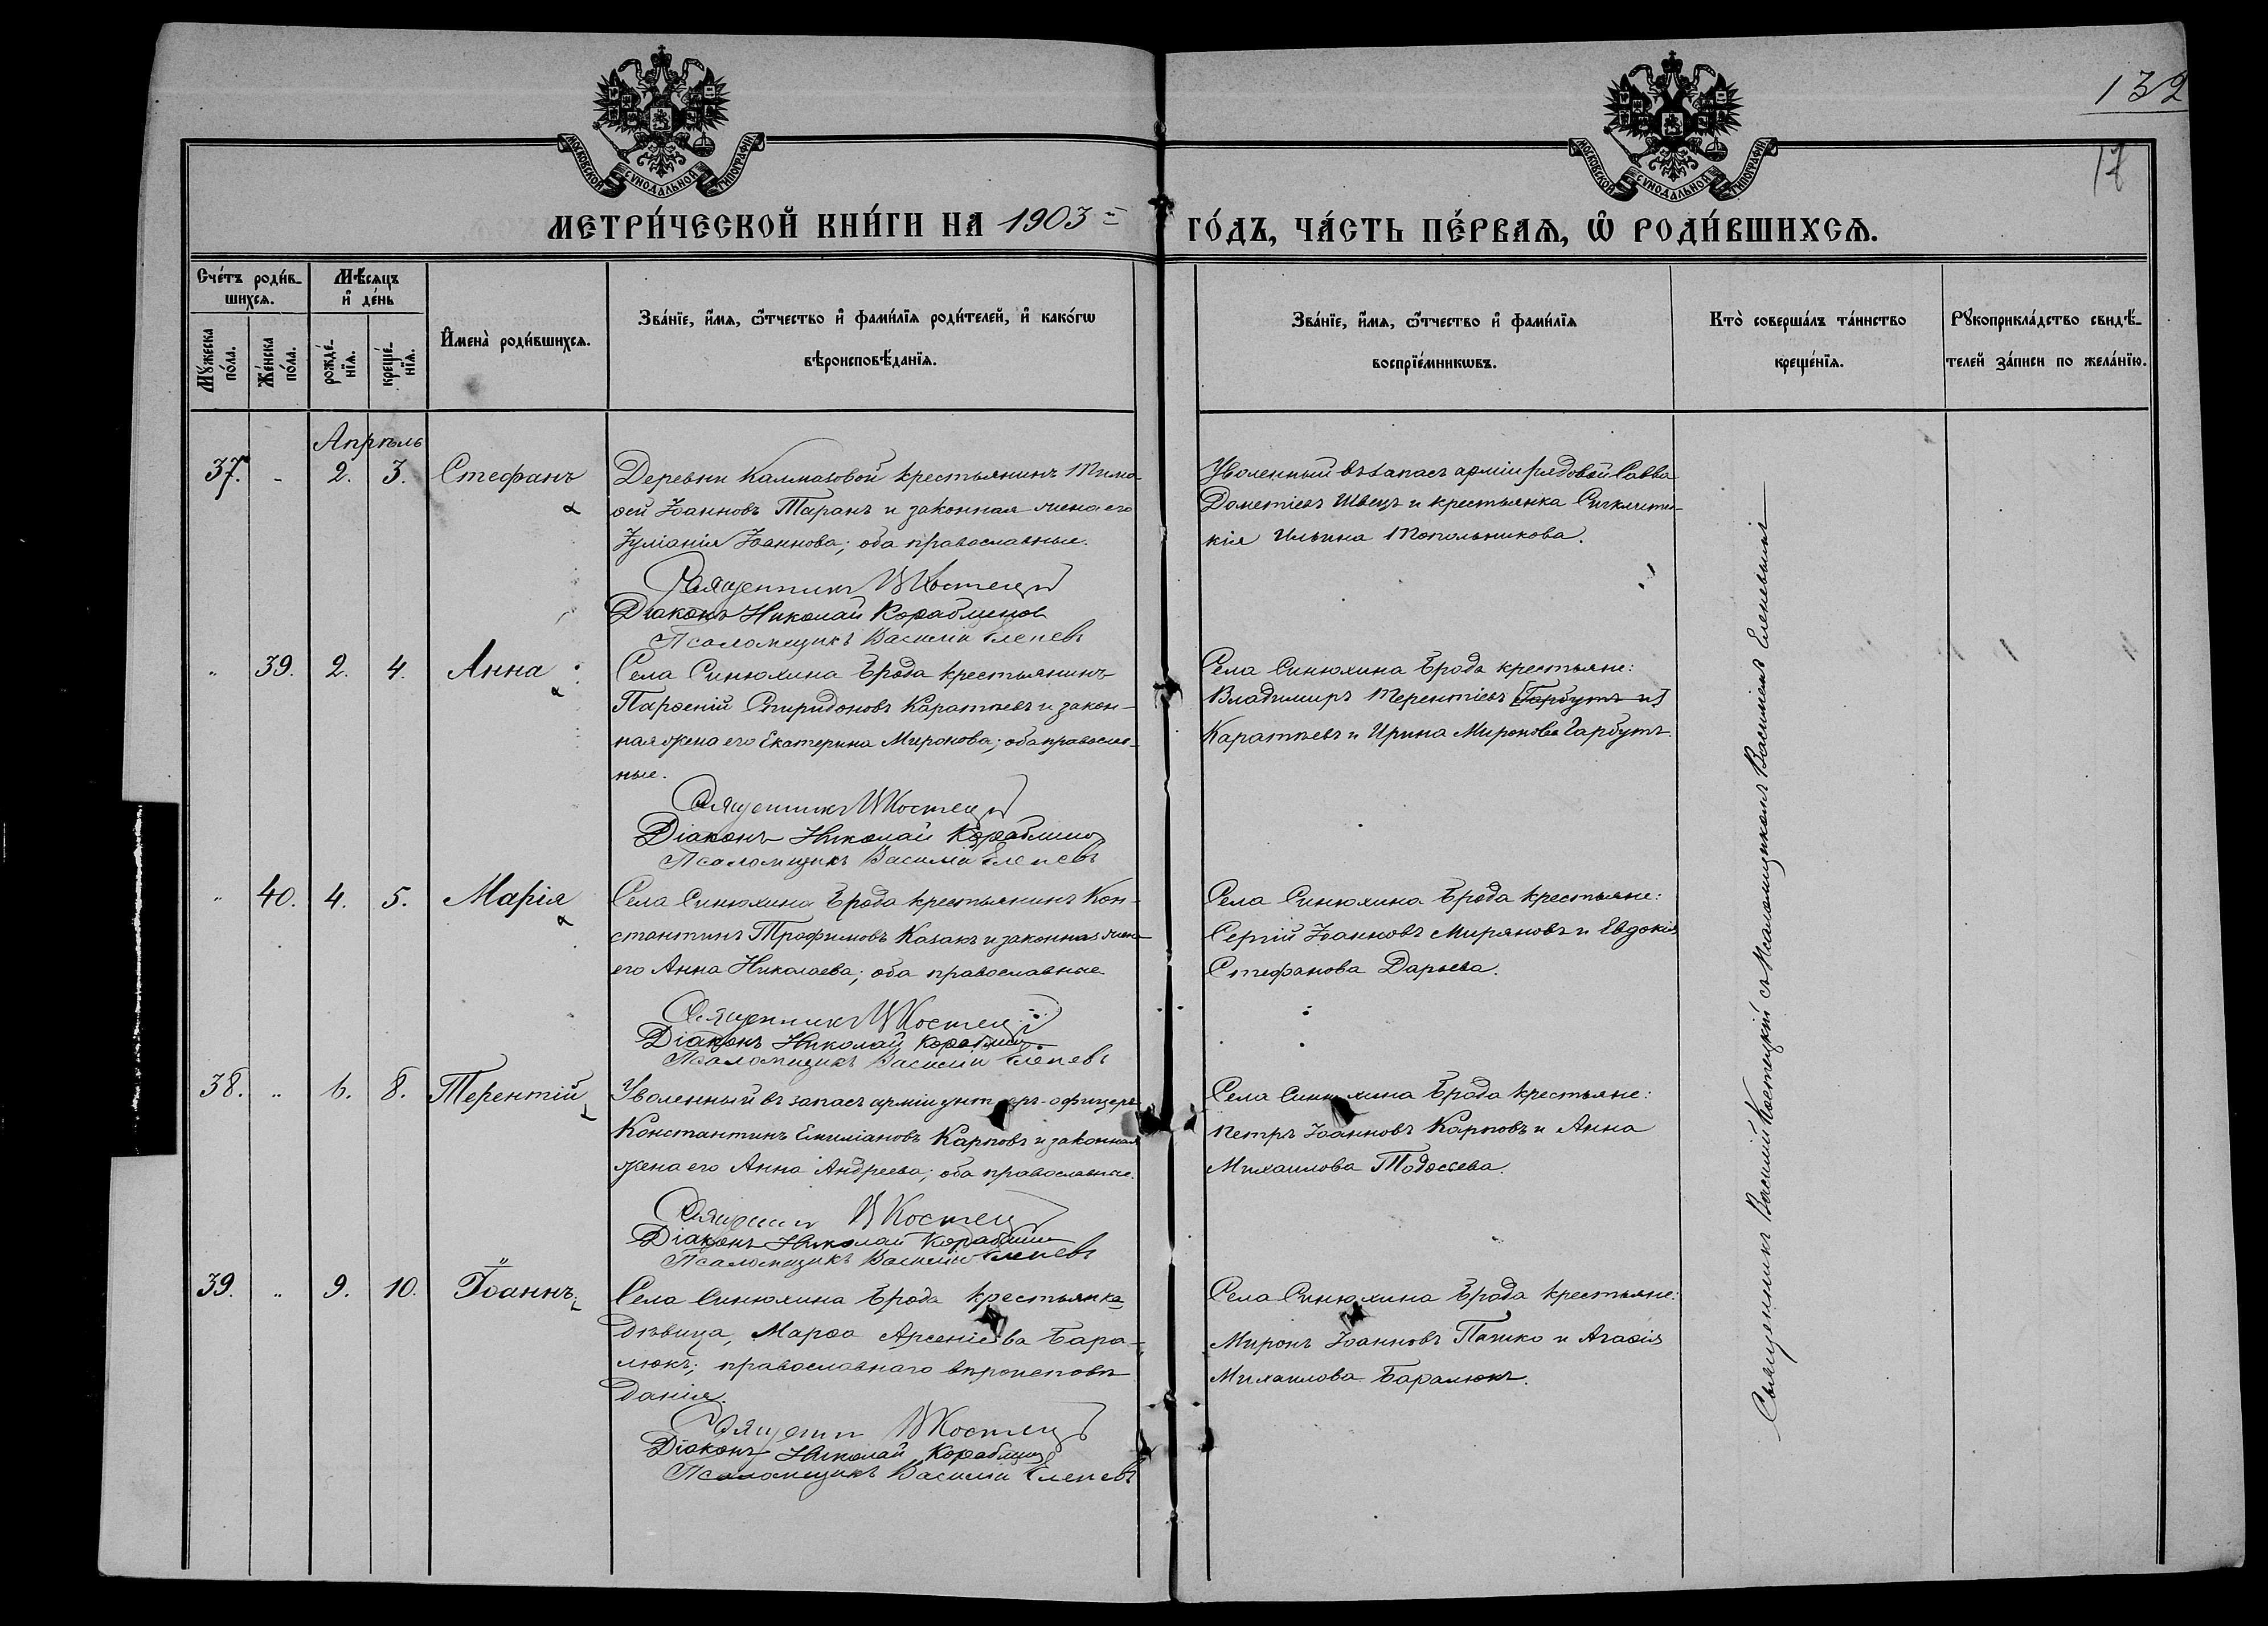 132
17
МОСКОВСКОЙ СѴНОДАЛЬНОЙ ТИПОГРАФІИ
МОСКОВСКОЙ СѴНОДАЛЬНОЙ ТИПОГРАФІИ
МЕТРИ́ЧЕСКОЙ КНИ́ГИ НА 1903 ГО́ДЪ, ЧА́СТЬ ПЕ́РВАѦ, Ѡ҆ РОДИ́ВШИХСѦ.
Сче́тъ роди́в-
шихсѧ.
Мѣ́сѧцъ
и҆ де́нь
Мꙋ́жеска
по́ла.
Же́нска
по́ла.
рожде́-
нїѧ.
креще́-
нїѧ.
И҆мена̀ роди́вшихсѧ.
Зва́нїе, и҆́мѧ, ѻ҆́тчество и҆ фами́лїѧ роди́телей, и҆ како́гѡ
вѣроисповѣ́данїѧ.
Зва́нїе, и҆́мѧ, ѻ҆́тчество и҆ фами́лїѧ
воспрїе́мникѡвъ.
Кто̀ соверша́лъ та́инство
креще́нїѧ.
Рꙋкоприкла́дство свидѣ́-
телей за́писи по жела́нїю.
Апрѣль
37. - 2. 3. Стефанъ
Деревни Калмазовой крестьянинъ Тимо-
ѳей Іоанновъ Таранъ и законная жена его
Іуліанія Іоаннова; оба православные.
Священникъ В Костецкій
Діаконъ Николай Кораблинов
Псаломщикъ Василій Еленевъ
Уволенный въ запасъ арміи рядовой Савва
Дометіевъ Швецъ и крестьянка Синклити-
кія Ильина Топольникова.
„ 39. 2. 4. Анна
Села Синюхина Брода крестьянинъ
Парѳеній Спиридоновъ Каратѣевъ и закон-
ная жена его Екатерина Миронова; оба православ-
ные.
Священникъ В Костецкій
Діаконъ Николай Кораблинов
Псаломщикъ Василій Еленевъ
Села Синюхина Брода крестьяне:
Владимиръ Терентіевъ [Гарбутъ и]
Каратѣевъ и Ирина Миронова Гарбутъ.
„ 40. 4. 5. Марія
Села Синюхина Брода крестьянинъ Кон-
стантинъ Трофимовъ Казакъ и законная жена
его Анна Николаева; оба православные
Священникъ В Костецкій
Діаконъ Николай Кораблинов
Псаломщикъ Василій Еленевъ
Села Синюхина Брода крестьяне:
Сергій Іоанновъ Миряновъ и Евдокія
Стефанова Дарьева.
38. „ 6. 8. Терентій
Уволенный въ запасъ арміи унтеръ-офицеръ
Константинъ Емиліановъ Карповъ и законная
жена его Анна Андреева; оба православные.
Священник В Костецкій
Діаконъ Николай Кораблинов
Псаломщикъ Василій Еленевъ
Села Синюхина Брода крестьяне:
Петръ Іоанновъ Карповъ и Анна
Михаилова Тодосева.
39. „ 9. 10. Іоаннъ
Села Синюхина Брода крестьянка
дѣвица, Марѳа Арсеніева Бара-
люкъ; православнаго вѣроисповѣ
данія.
Священник В Костецкій
Діаконъ Николай Кораблинов
Псаломщикъ Василій Еленевъ
Села Синюхина Брода крестьяне:
Миронъ Іоанновъ Пашко и Агаѳія
Михаилова Баралюкъ.
Священникъ Василій Костецкій съ Псаломщикомъ Василіемъ Еленевымъ